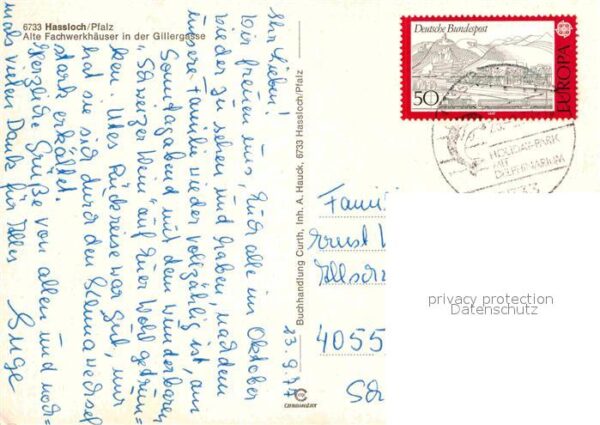 6733 Hassloch/Pfalz
Alte Fachwerkhäuser in der Gillergasse
23.9.77
Ihr Lieben!
Wir freuen uns, Euch alle im Oktober
wieder zu sehen und haben, nachdem
unsere Familie wieder vollzählig ist, am
Sonntagabend mit dem wunderbaren
"Schweizer Wein" auf Euer Wohl getrun=
ken. Utes Rückreise war gut, nur
hat sie sich durch den Klimawechsel
stark erkältet.
Herzliche Grüße von allen und noch=
mals vielen Dank für Alles
Inge
Buchhandlung Curth, Inh. A. Hauck, 6733 Hassloch/Pfalz
Deutsche Bundespost
50
EUROPA
HOLIDAY-PARK
MIT
DELPHINARIUM
Famili
Ernst
4055
privacy protection
Datenschutz